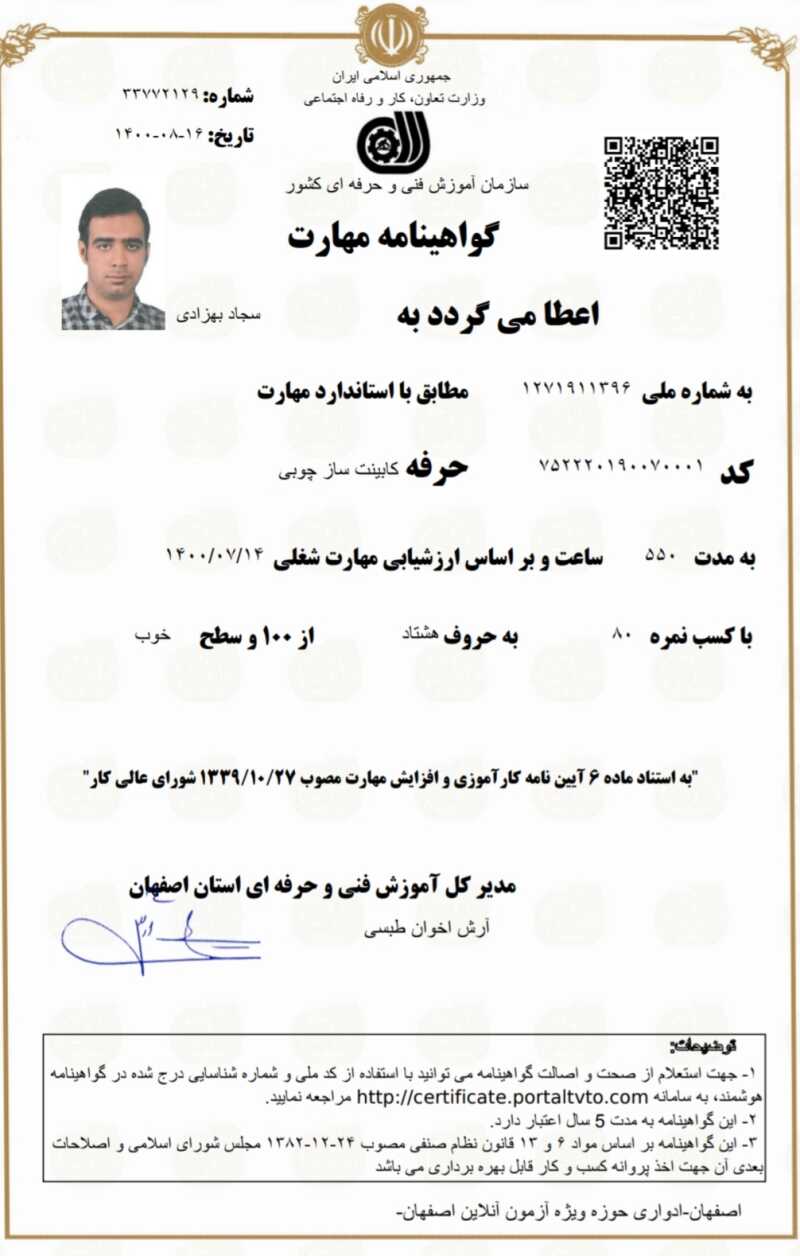 جمهوری اسلامی ایران
وزارت تعاون، کار و رفاه اجتماعی
شماره: ۳۳۷۷۲۱۲۹
تاریخ: ۱۴۰۰-۰۸-۱۶
سازمان آموزش فنی و حرفه ای کشور
گواهینامه مهارت
اعطا می گردد به سجاد بهزادی
به شماره ملی ۱۲۷۱۹۱۱۳۹۶ مطابق با استاندارد مهارت
کد ۷۵۲۲۲۰۱۹۰۰۷۰۰۰۱ حرفه کابینت ساز چوبی
به مدت ۵۵۰ ساعت و بر اساس ارزشیابی مهارت شغلی ۱۴۰۰/۰۷/۱۴
با کسب نمره ۸۰ به حروف هشتاد از ۱۰۰ و سطح خوب
"به استناد ماده ۶ آیین نامه کارآموزی و افزایش مهارت مصوب ۱۳۳۹/۱۰/۲۷ شورای عالی کار"
مدیر کل آموزش فنی و حرفه ای استان اصفهان
آرش اخوان طبسی
توضیحات:
۱- جهت استعلام از صحت و اصالت گواهینامه می توانید با استفاده از کد ملی و شماره شناسایی درج شده در گواهینامه
هوشمند، به سامانه http://certificate.portaltvto.com مراجعه نمایید.
۲- این گواهینامه به مدت 5 سال اعتبار دارد.
۳- این گواهینامه بر اساس مواد ۶ و ۱۳ قانون نظام صنفی مصوب ۲۴-۱۲-۱۳۸۲ مجلس شورای اسلامی و اصلاحات
بعدی آن جهت اخذ پروانه کسب و کار قابل بهره برداری می باشد
اصفهان-ادواری حوزه ویژه آزمون آنلاین اصفهان-